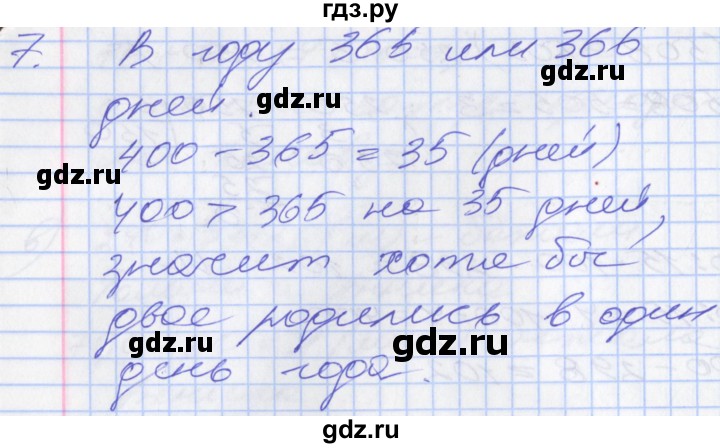 гдз.ру
7. В году 365 или 366
дней.
400 - 365 = 35 (дней)
400 > 365 на 35 дней,
значит хотя бы
двое родились в один
день года.
gdz.ru gdz.ru
gdz.ru gdz.ru
gdz.ru gdz.ru
gdz.ru gdz.ru